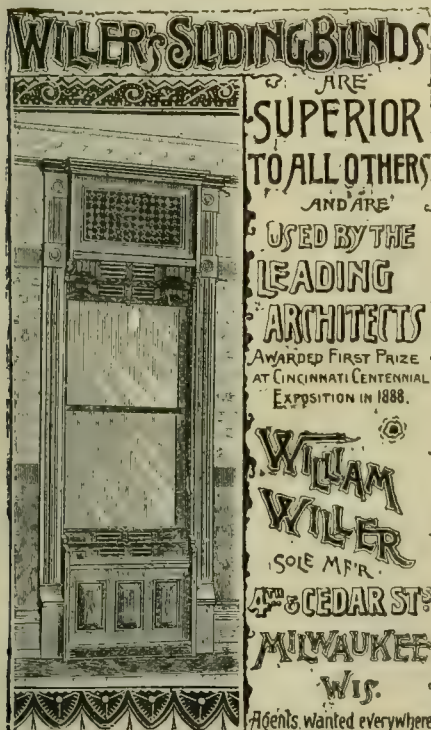 WILLER'S SLIDING BLINDS
ARE
SUPERIOR
TO ALL OTHERS
AND ARE
USED BY THE
LEADING
ARCHITECTS
AWARDED FIRST PRIZE
AT CINCINNATI CENTENNIAL
EXPOSITION IN 1888.
WILLIAM
WILLER
SOLE MF'R.
4TH & CEDAR STS
MILWAUKEE
WIS.
Agents wanted everywhere